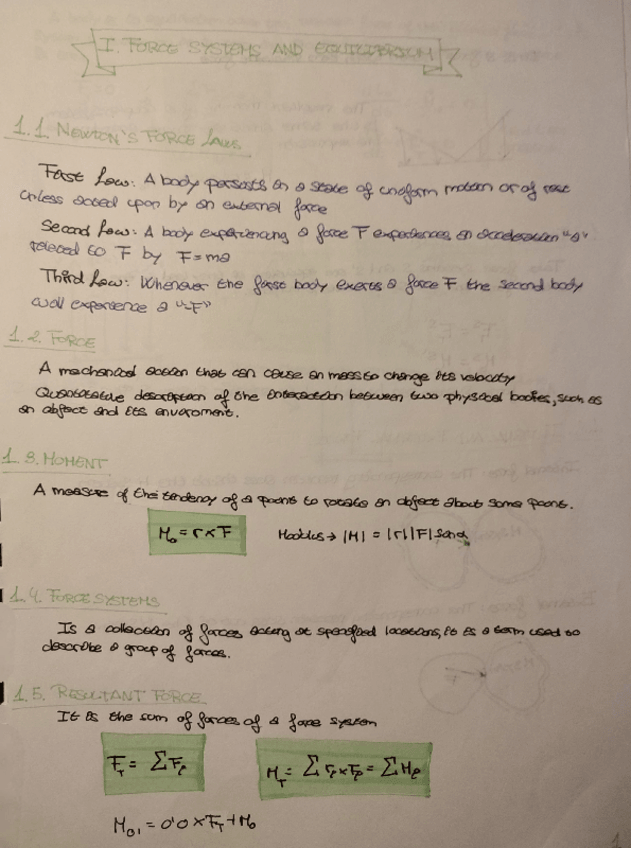 I. FORCE SYSTEMS AND EQUILIBRIUM
1.1. NEWTON'S FORCE LAWS
First Law: A body persists in a state of uniform motion or of rest
unless acted upon by an external force
Second Law: A body experiencing a force F experiences an acceleration "a"
related to F by F=ma
Third Law: Whenever the first body exerts a force F the second body
will experience a "-F"
1.2. FORCE
A mechanical action that can cause an mass to change its velocity
Quantitative description of the interaction between two physical bodies, such as
an object and its enviroment.
1.3. MOMENT
A measure of the tendency of a point to rotate an object about some point.
M₀ = r x F Modulus → |M| = |r||F| sin α
1.4. FORCE SYSTEMS
Is a collection of forces acting at specified locations, it is a term used to
describe a group of forces.
1.5. RESULTANT FORCE.
It is the sum of forces of a force system
F_T = ΣF_i M_T = Σ r_i x F_i = Σ M_i
M_0' = 0'0 x F_T + M_0